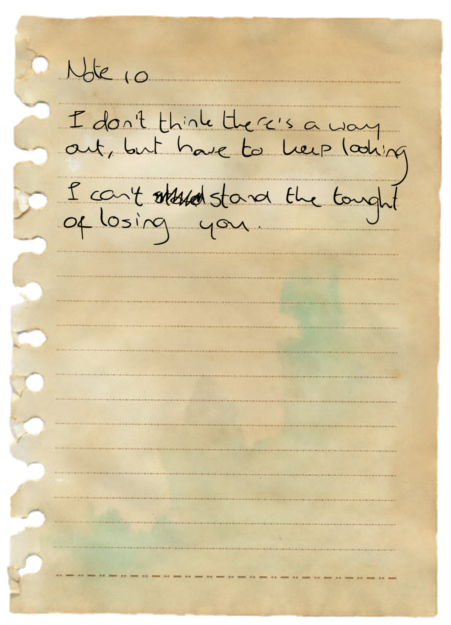 Note 10
I don't think there's a way
out, but have to keep looking
I can't stand the tought
of losing you.